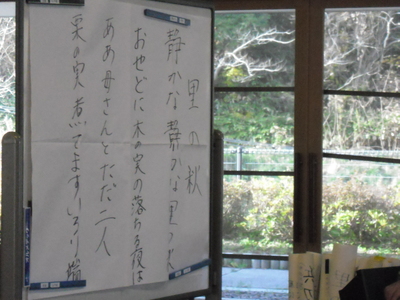 里の秋
静かな静かな里の秋
おせどに木の実の落ちる夜は
ああ母さんとただ二人
栗の実煮てますいろり端